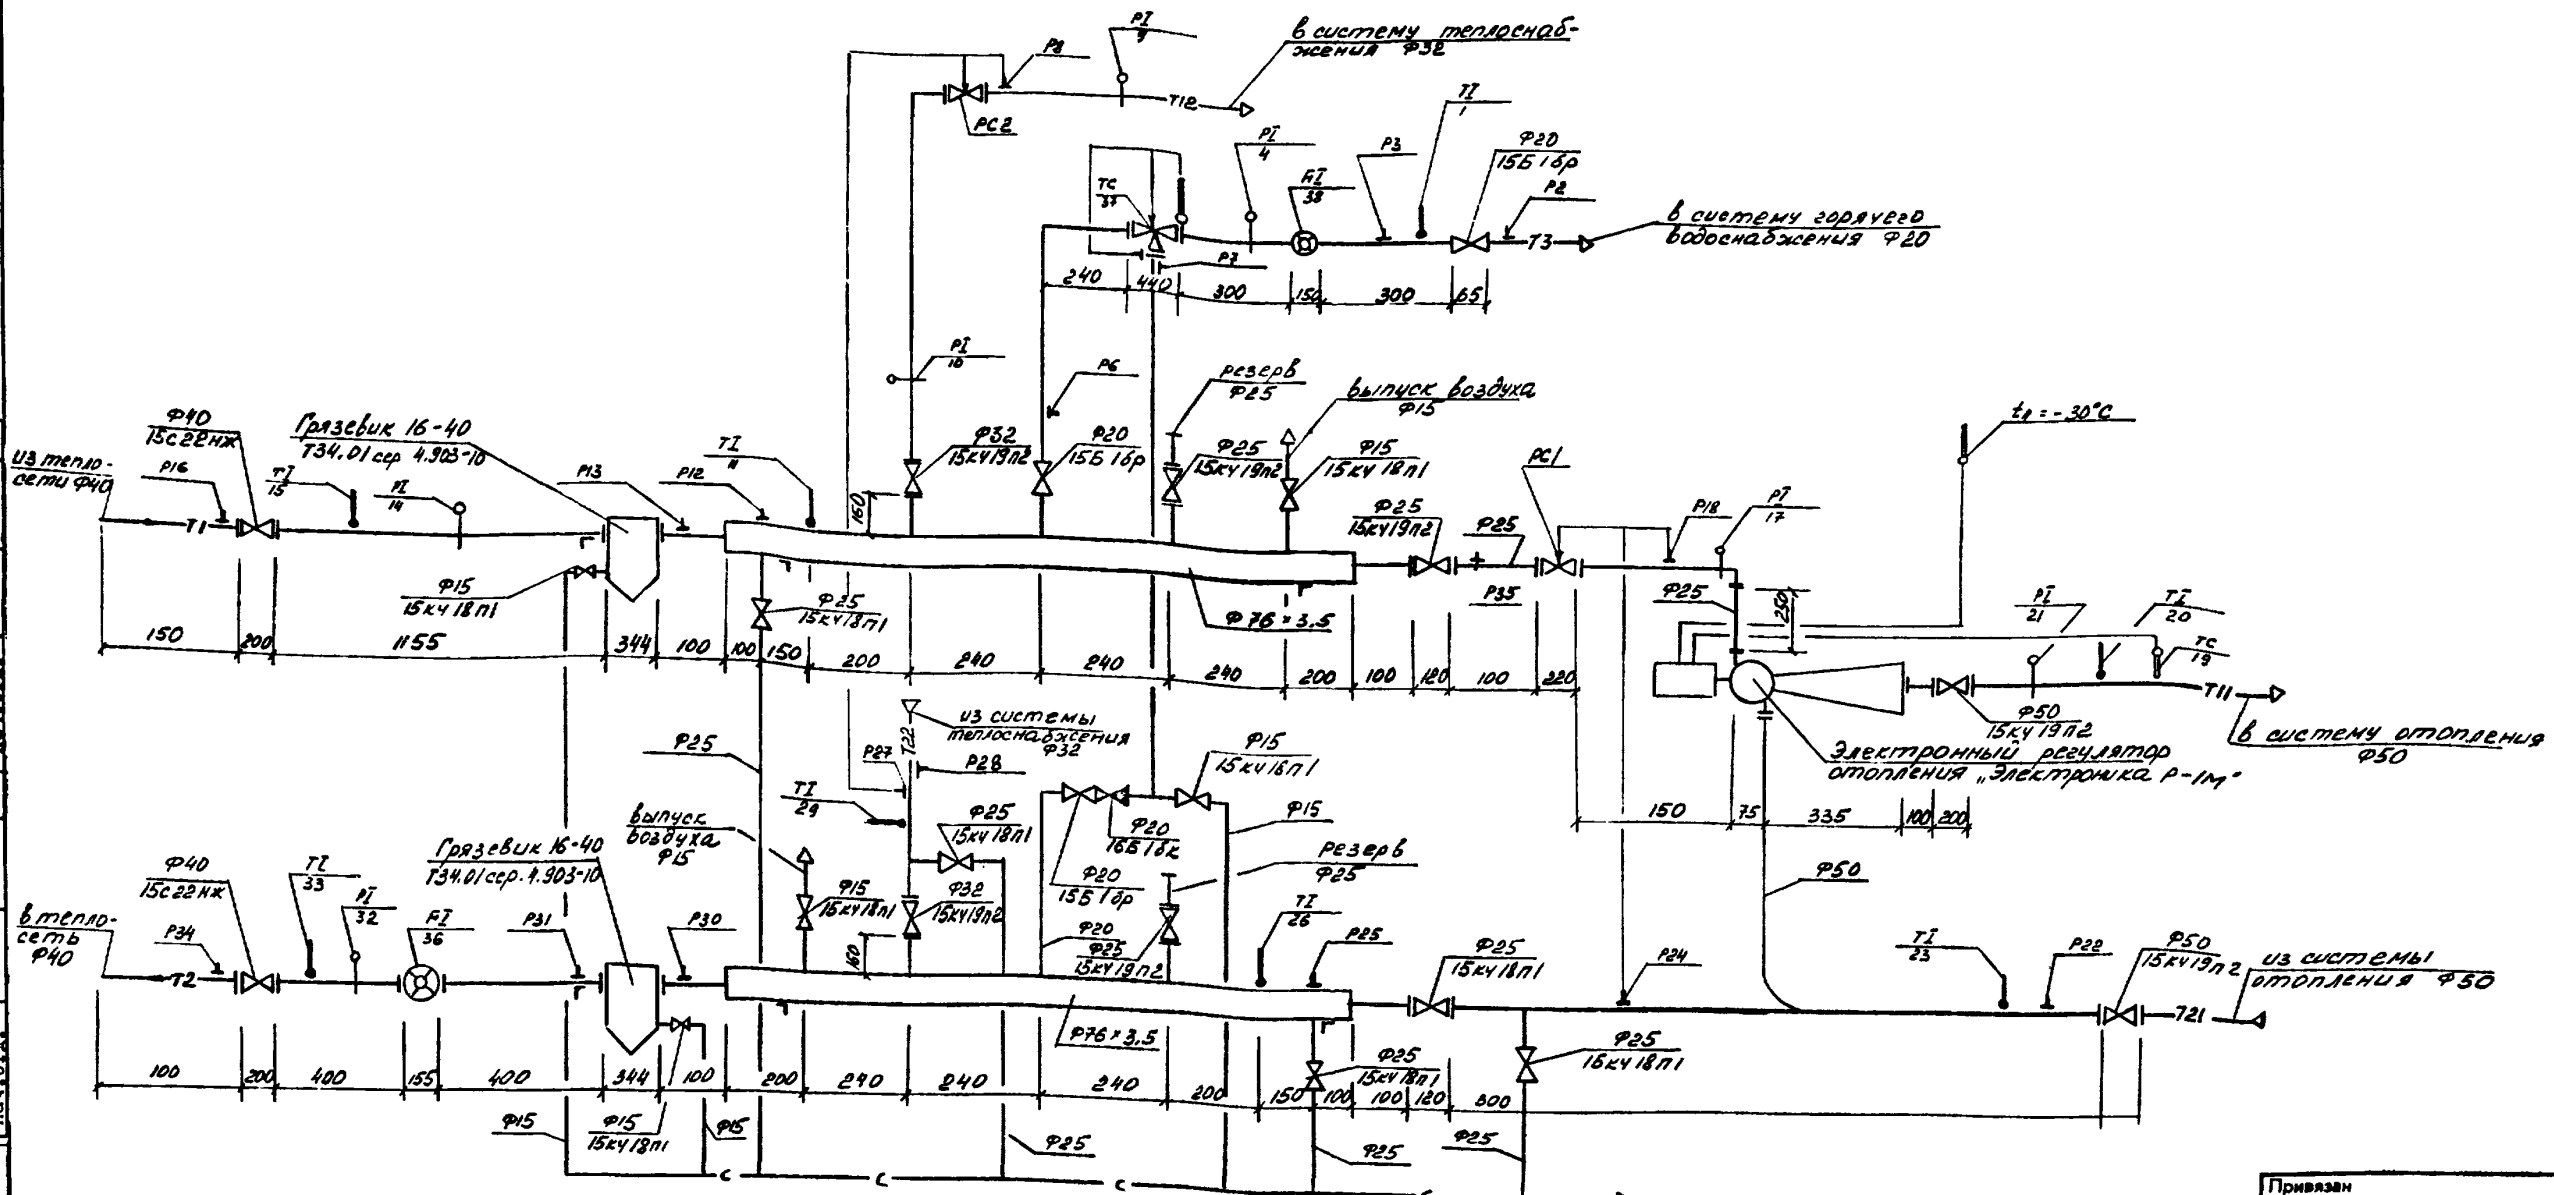 PI
9
в систему теплоснаб-
жения Ф32
P8
T12
PC2
TI
1
PI
4
P3
Ф20
15Б 1бр
FI
38
TC
37
P2
T3
в систему горячего
водоснабжения Ф20
P7
240
440
300
150
300
65
PI
10
P6
резерв
Ф25
выпуск воздуха
Ф15
tн = -30°C
Ф40
15с22нж
Грязевик 16-40
ТЗ4.01 сер 4.903-10
из тепло-
сети Ф40
P16
TI
15
PI
14
P13
P12
TI
11
Ф32
15кч19п2
Ф20
15Б 1бр
Ф25
15кч19п2
Ф15
15кч18п1
PC1
160
Ф25
15кч19п2
Ф25
P18
PI
17
T1
P35
Ф15
15кч18п1
Ф25
15кч18п1
Ф76×3,5
Ф25
250
PI
21
TI
20
TC
19
150
200
1155
344
100
100
150
200
240
240
240
200
100
120
100
220
T11
Ф50
15кч19п2
в систему отопления
Ф50
Электронный регулятор
отопления „Электроника Р-1М"
из системы
теплоснабжения
Ф32
T22
Ф25
P27
P28
Ф15
15кч18п1
TI
29
150
75
335
100
200
выпуск
воздуха
Ф15
Ф25
15кч18п1
Ф20
16Б1бк
Ф15
Грязевик 16-40
ТЗ4.01 сер. 4.903-10
Ф20
15Б 1бр
резерв
Ф25
Ф50
Ф40
15с22нж
TI
33
PI
32
FI
36
P31
P30
Ф15
15кч18п1
Ф32
15кч19п2
160
Ф20
Ф25
15кч19п2
TI
26
P25
Ф25
15кч18п1
P24
TI
23
P22
Ф50
15кч19п2
из системы
отопления Ф50
в тепло-
сеть
Ф40
P34
T2
T21
Ф76×3,5
Ф25
15кч18п1
Ф25
15кч18п1
100
200
400
155
400
344
100
200
240
240
240
200
150
100
100
120
800
Ф15
Ф15
15кч18п1
Ф15
Ф25
Ф25
Ф25
С
С
С
Привязан